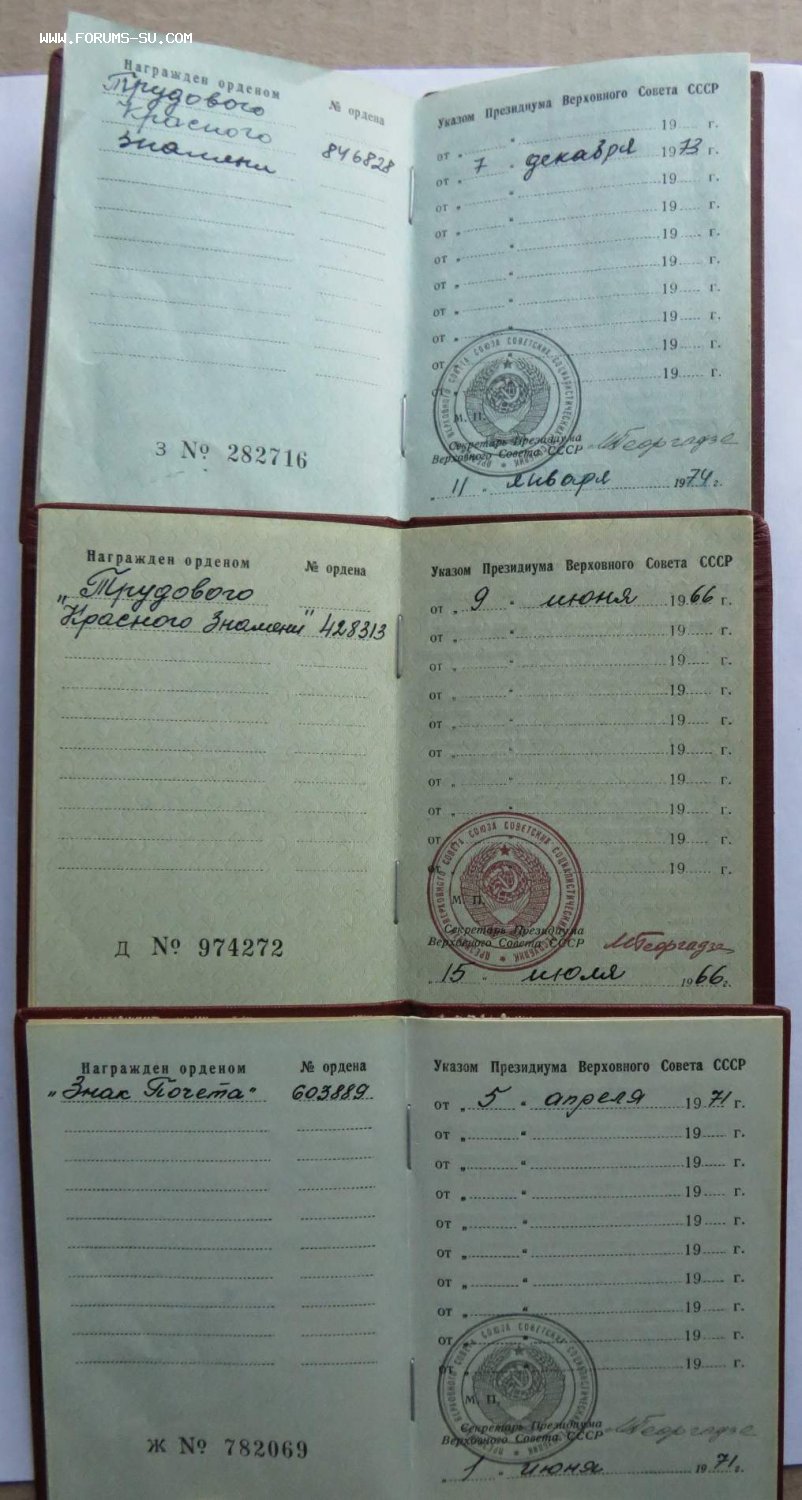 WWW.FORUMS-SU.COM
Награжден орденом № ордена
Трудового
Красного
Знамени 846828
З № 282716
Указом Президиума Верховного Совета СССР
от „ “ 19 г.
от „ 7 “ декабря 1973 г.
от „ “ 19 г.
от „ “ 19 г.
от „ “ 19 г.
от „ “ 19 г.
от „ “ 19 г.
от „ “ 19 г.
от „ “ 19 г.
от „ “ 19 г.
ПРЕЗИДИУМ ВЕРХОВНОГО СОВЕТА СОЮЗА СОВЕТСКИХ СОЦИАЛИСТИЧЕСКИХ РЕСПУБЛИК
М. П.
Секретарь Президиума
Верховного Совета СССР МГеоргадзе
„ 11 “ января 1974 г.
Награжден орденом № ордена
„Трудового
Красного Знамени" 428313
Д № 974272
Указом Президиума Верховного Совета СССР
от „ 9 “ июня 1966 г.
от „ “ 19 г.
от „ “ 19 г.
от „ “ 19 г.
от „ “ 19 г.
от „ “ 19 г.
от „ “ 19 г.
от „ “ 19 г.
от „ “ 19 г.
от „ “ 19 г.
ПРЕЗИДИУМ ВЕРХОВНОГО СОВЕТА СОЮЗА СОВЕТСКИХ СОЦИАЛИСТИЧЕСКИХ РЕСПУБЛИК
М. П.
Секретарь Президиума
Верховного Совета СССР МГеоргадзе
„ 15 “ июля 1966 г.
Награжден орденом № ордена
„Знак Почета" 603889
Ж № 782069
Указом Президиума Верховного Совета СССР
от „ 5 “ апреля 1971 г.
от „ “ 19 г.
от „ “ 19 г.
от „ “ 19 г.
от „ “ 19 г.
от „ “ 19 г.
от „ “ 19 г.
от „ “ 19 г.
от „ “ 19 г.
от „ “ 19 г.
ПРЕЗИДИУМ ВЕРХОВНОГО СОВЕТА СОЮЗА СОВЕТСКИХ СОЦИАЛИСТИЧЕСКИХ РЕСПУБЛИК
М. П.
Секретарь Президиума
Верховного Совета СССР МГеоргадзе
„ 1 “ июня 1971 г.